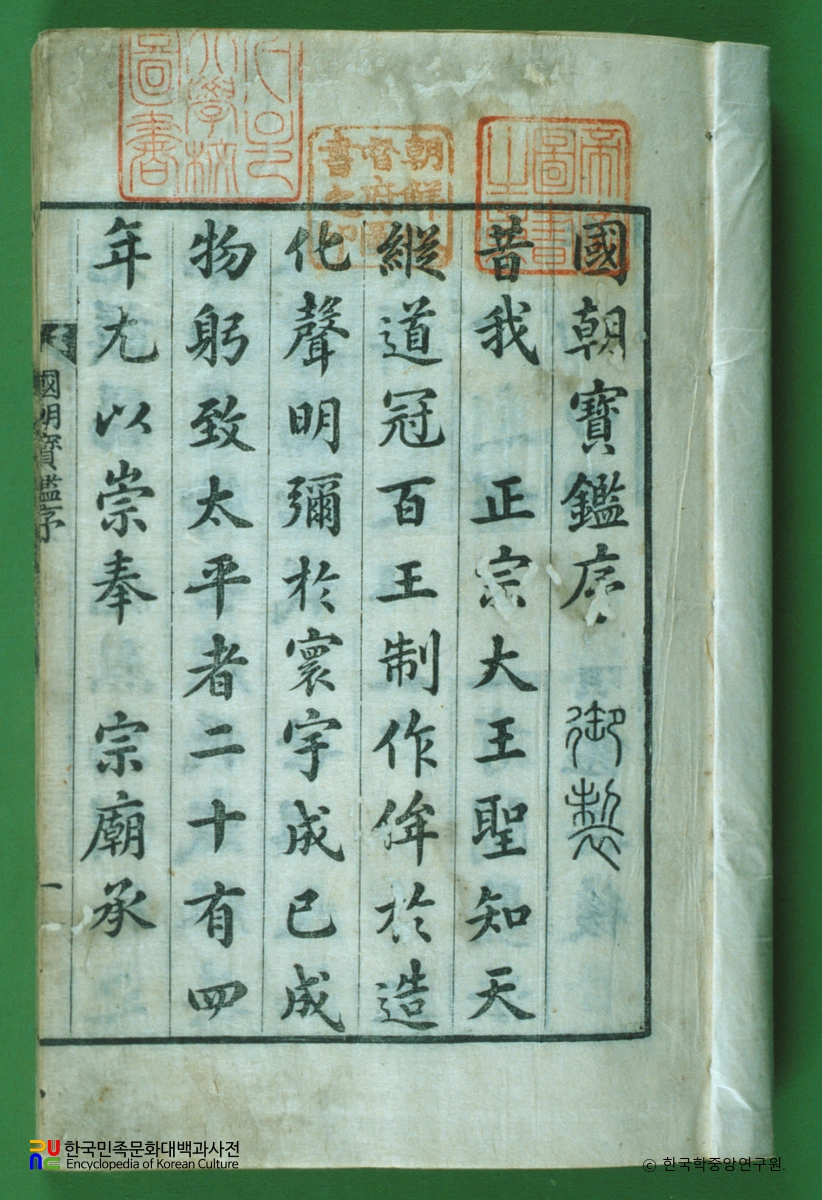 國朝寶鑑序 御製
昔我 正宗大王聖知天
縱道冠百王制作侔於造
化聲明彌於寰宇成已成
物躬致太平者二十有四
年尤以崇奉 宗廟承
國朝寶鑑序
一
帝室圖書之章
朝鮮總督府圖書之印
大學校圖書
한국민족문화대백과사전
Encyclopedia of Korean Culture
© 한국학중앙연구원.